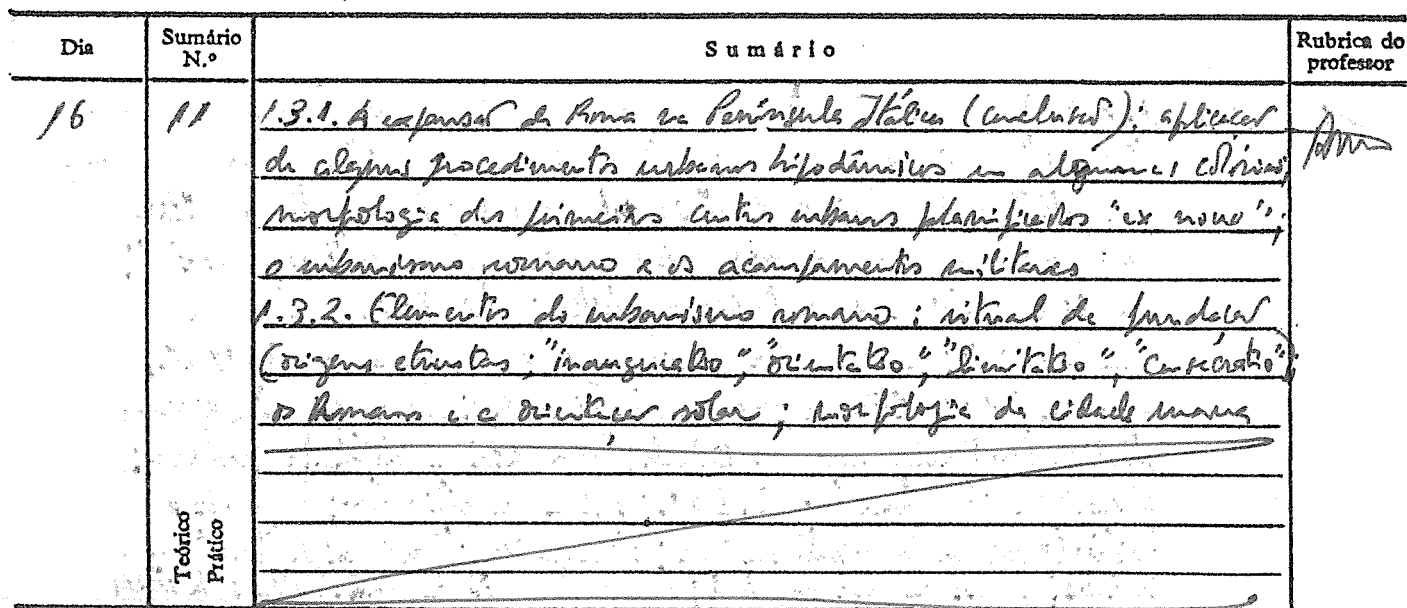 Dia Sumário N.º Sumário Rubrica do professor
16 11 1.3.1. A expansão de Roma na Península Itálica (conclusão): aplicação
de alguns procedimentos urbanos hipodâmicos em algumas colónias;
morfologia dos primeiros centros urbanos planificados "ex novo";
o urbanismo romano e os acampamentos militares
1.3.2. Elementos do urbanismo romano: ritual de fundação
(origens etruscas; "inauguratio", "orientatio", "limitatio", "consecratio");
os Romanos e a orientação solar; morfologia da cidade romana
Teórico
Prático